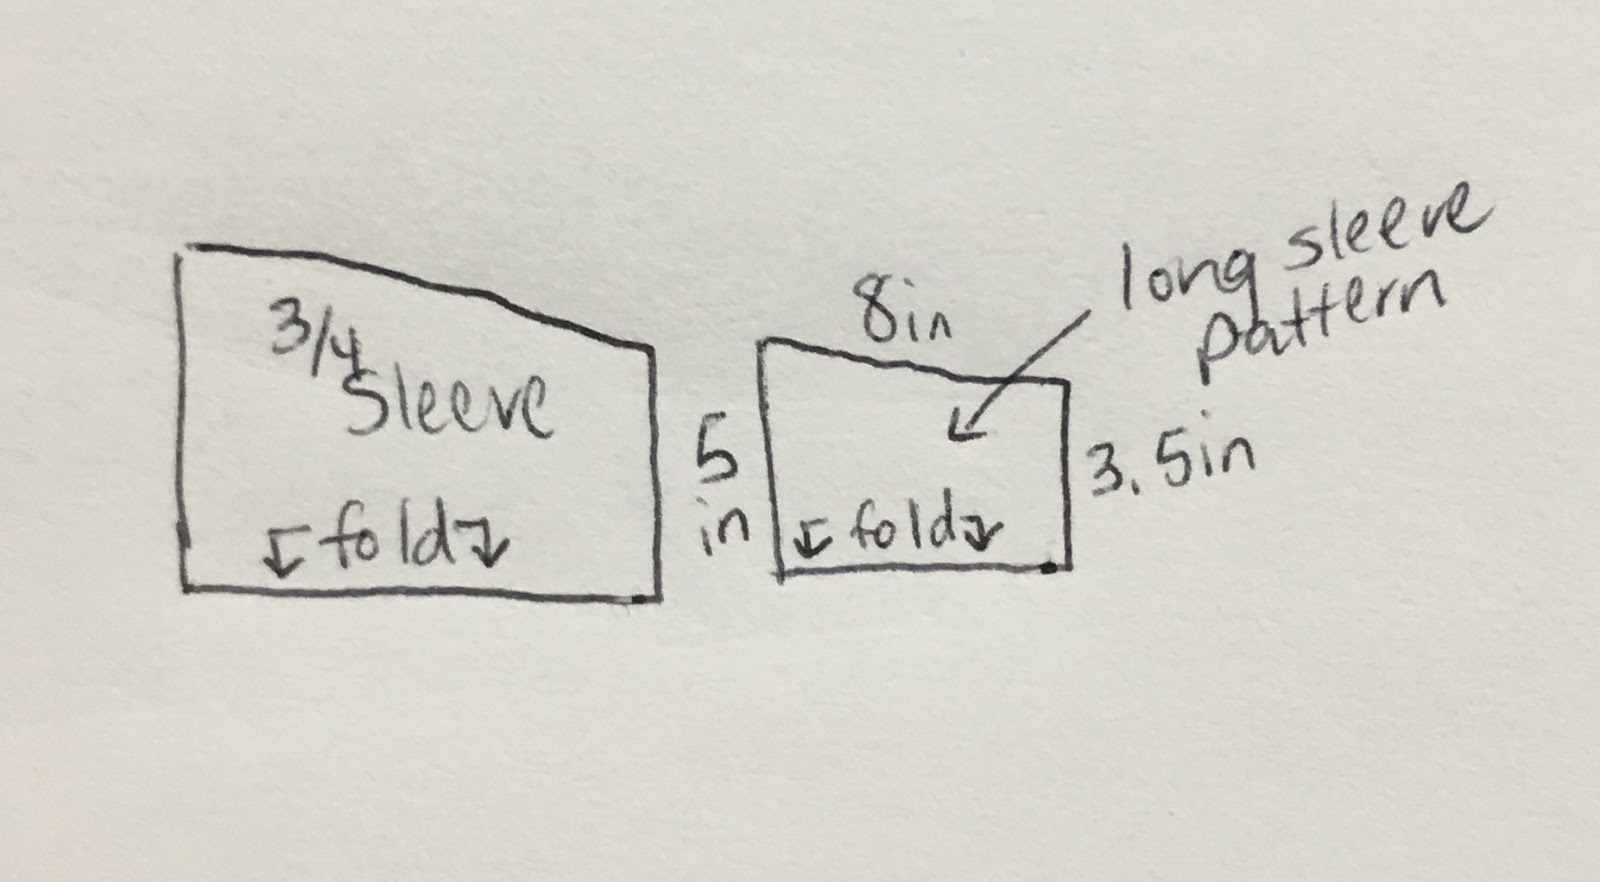 3/4
Sleeve
fold
5
in
8in
fold
3.5in
long sleeve
pattern